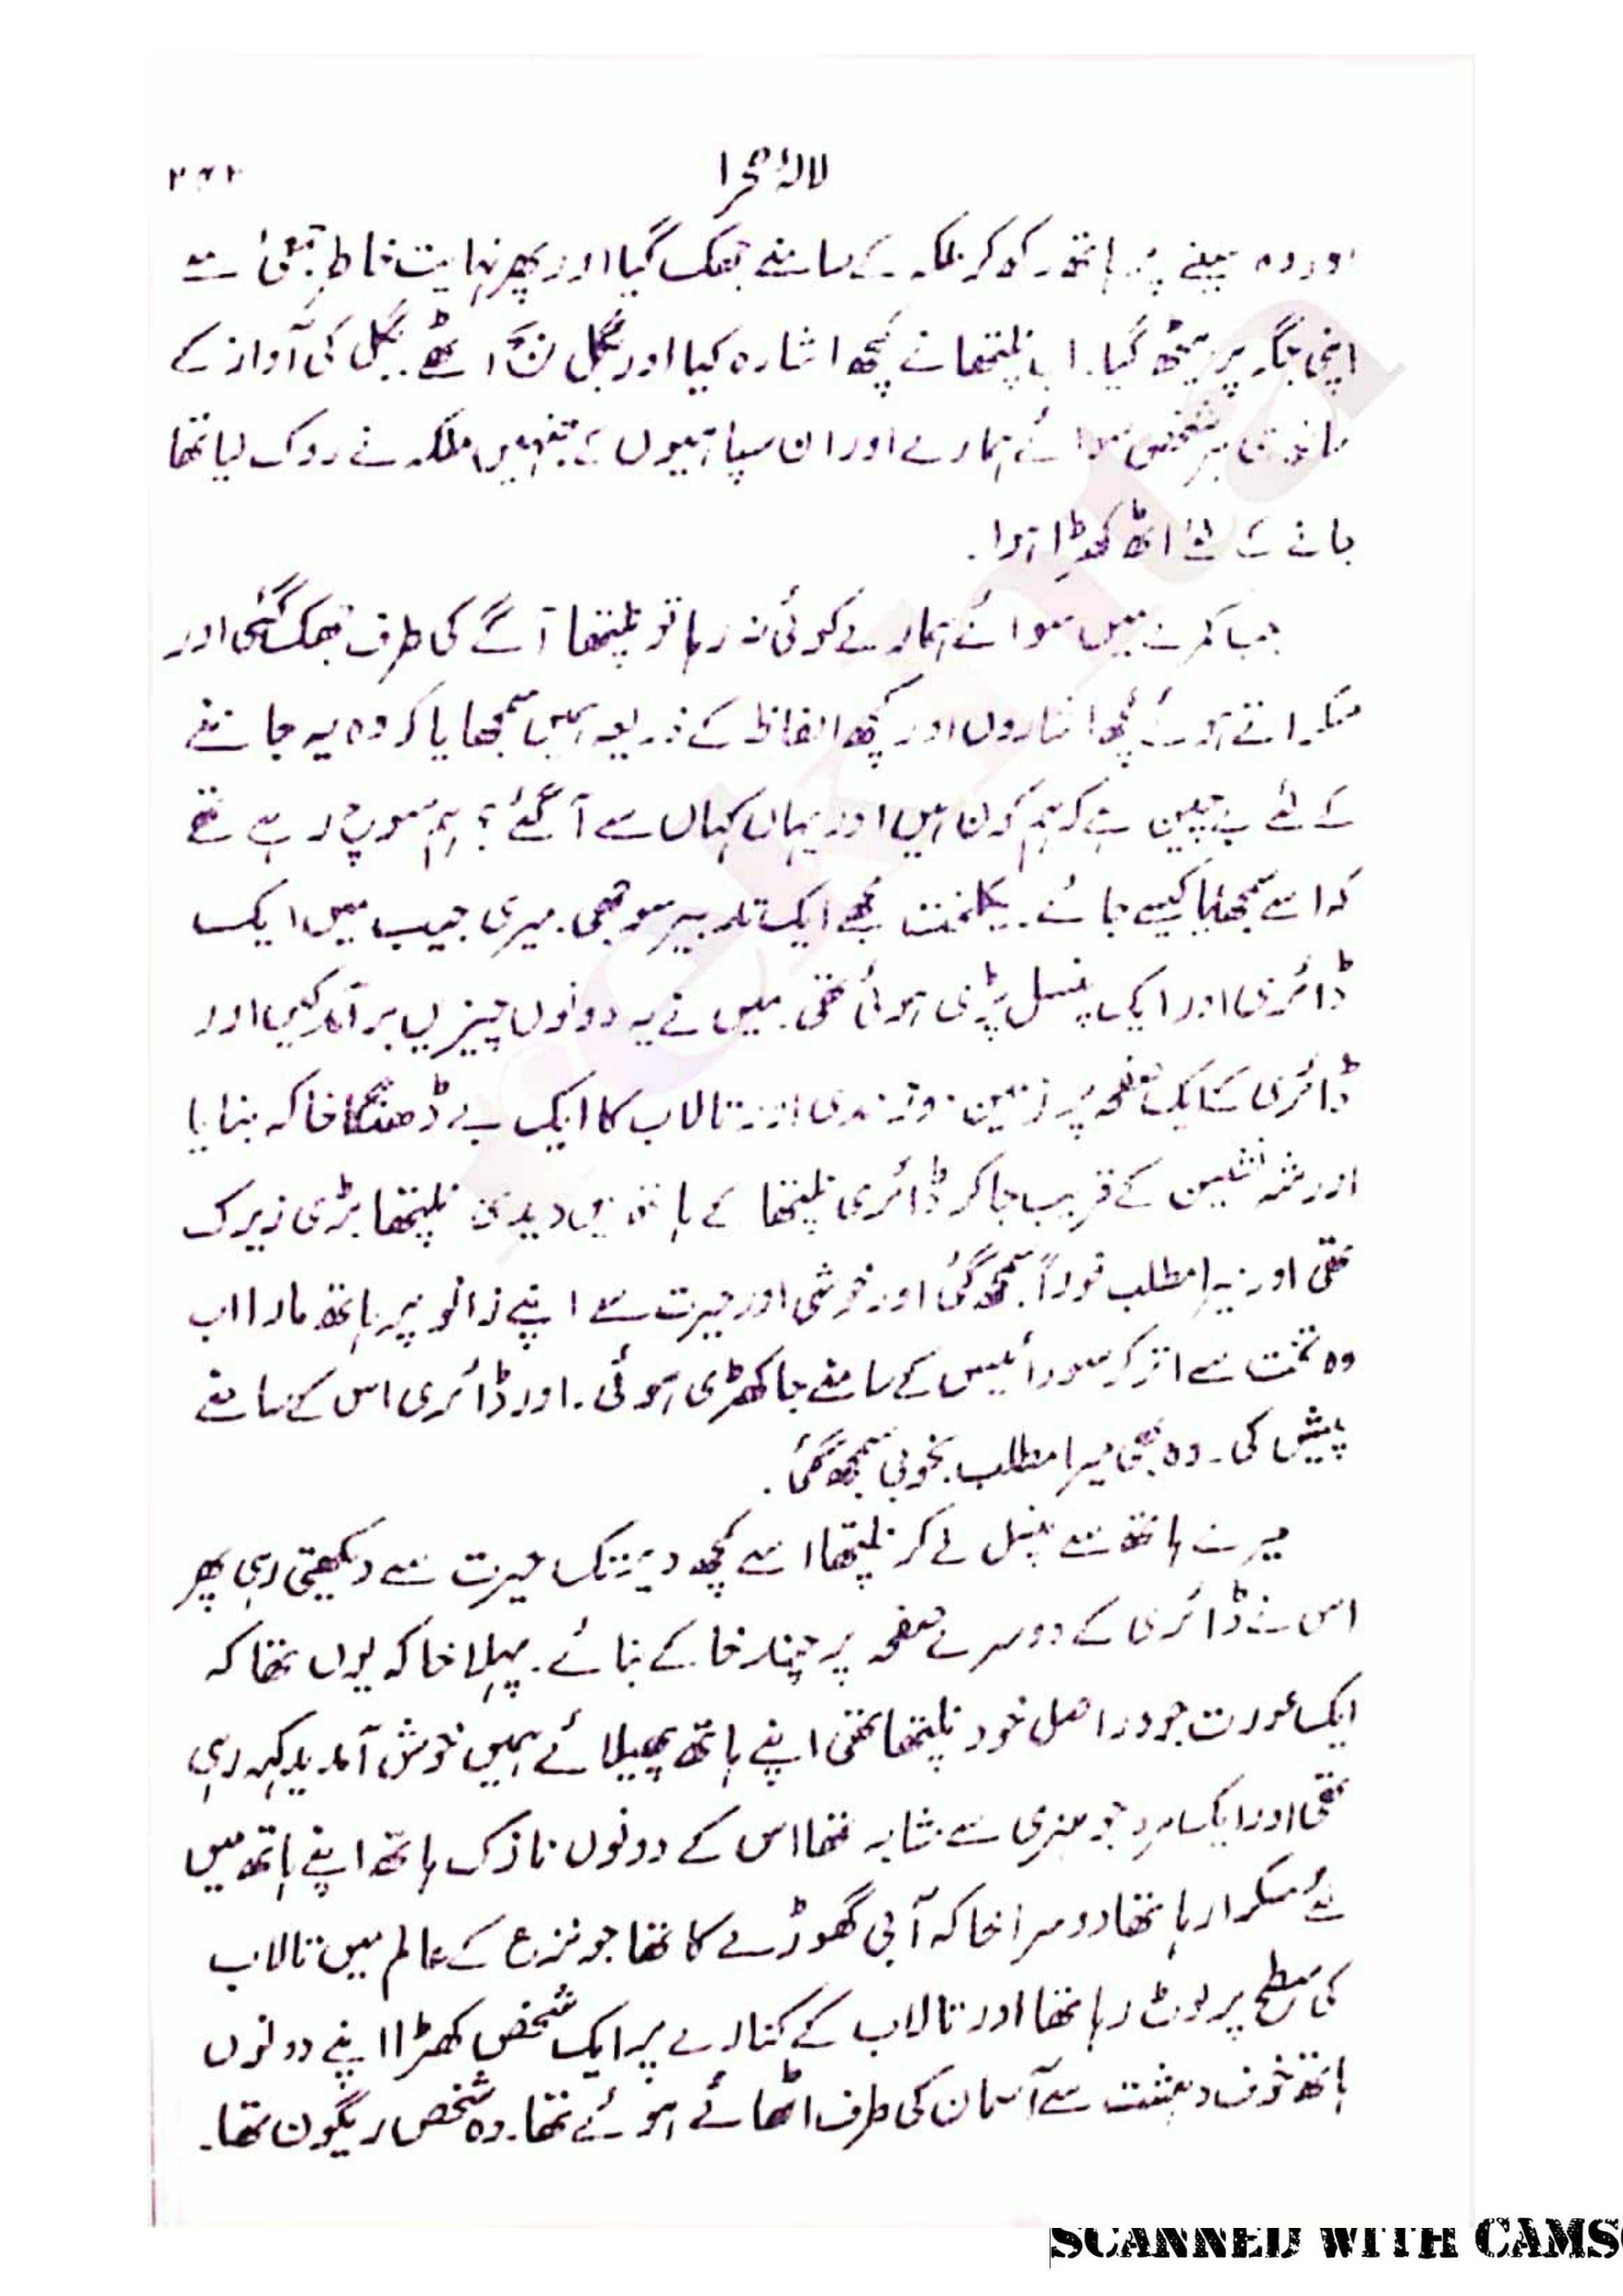 لالۂ صحرا ۲۶۲
اور وہ سینے پر ہاتھ رکھ کر ملکہ کے سامنے جھک گیا اور پھر نہایت خاطر جمعی سے
اپنی جگہ پر بیٹھ گیا۔ اب نلیتھا نے کچھ اشارہ کیا اور بگل بج اٹھے۔ بگل کی آواز کے
ساتھ ہی ہر شخص سوائے ہمارے اور ان سپاہیوں کے جنہیں ملکہ نے روک لیا تھا
جانے کے لئے اٹھ کھڑا ہوا۔
جب کمرے میں سوائے ہمارے کوئی نہ رہا تو نلیتھا آگے کی طرف جھک گئی اور
مسکراتے ہوئے کچھ اشاروں اور کچھ الفاظ کے ذریعہ ہمیں سمجھایا کہ وہ یہ جاننے
کے لئے بے چین ہے کہ ہم کون ہیں اور یہاں کہاں سے آگئے؟ ہم سوچ رہے تھے
کہ اسے سمجھایا کیسے جائے۔ یکلخت مجھے ایک تدبیر سوجھی۔ میری جیب میں ایک
ڈائری اور ایک پنسل پڑی ہوئی تھی۔ میں نے یہ دونوں چیزیں برآمد کیں اور
ڈائری کے ایک صفحہ پر زمین دوز ندی اور تالاب کا ایک بے ڈھنگا خاکہ بنایا
اور شہ نشین کے قریب جا کر ڈائری نلیتھا کے ہاتھ میں دیدی۔ نلیتھا بڑی زیرک
تھی اور میرا مطلب فوراً سمجھ گئی اور خوشی اور حیرت سے اپنے زانو پر ہاتھ مارا اب
وہ تخت سے اتر کر سورائیس کے سامنے جا کھڑی ہوئی۔ اور ڈائری اس کے سامنے
پیش کی۔ وہ بھی میرا مطلب بخوبی سمجھ گئی۔
میرے ہاتھ سے پنسل لے کر نلیتھا اسے کچھ دیر تک حیرت سے دیکھتی رہی پھر
اس نے ڈائری کے دوسرے صفحہ پر چند خاکے بنائے۔ پہلا خاکہ یوں تھا کہ
ایک عورت جو دراصل خود نلیتھا تھی اپنے ہاتھ پھیلائے ہمیں خوش آمدید کہہ رہی
تھی اور ایک مرد جو ہنری سے مشابہ تھا اس کے دونوں نازک ہاتھ اپنے ہاتھ میں
لئے مسکرا رہا تھا دوسرا خاکہ آبی گھوڑے کا تھا جو نزع کے عالم میں تالاب
کی سطح پر لوٹ رہا تھا اور تالاب کے کنارے پر ایک شخص کھڑا اپنے دونوں
ہاتھ خوف و دہشت سے آسمان کی طرف اٹھائے ہوئے تھا۔ وہ شخص ریگون تھا۔
SCANNED WITH CAMS